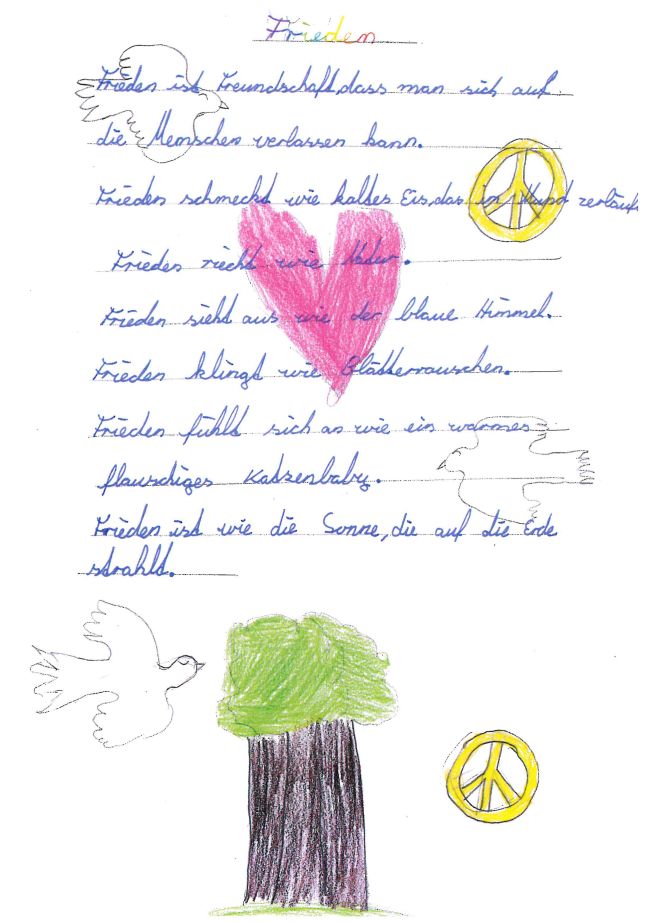 Frieden
Frieden ist Freundschaft, dass man sich auf
die Menschen verlassen kann.
Frieden schmeckt wie kaltes Eis, das in Mund verläuft
Frieden riecht wie Natur.
Frieden sieht aus wie der blaue Himmel.
Frieden klingt wie Blätterrauschen.
Frieden fühlt sich an wie ein warmes
flauschiges Katzenbaby.
Frieden ist wie die Sonne, die auf die Erde
strahlt.